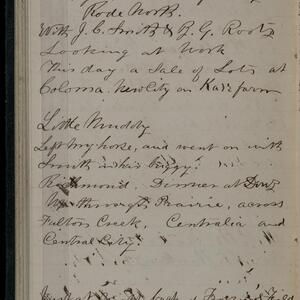 Rode North.
With J. C. Smith & R. G. Root
Looking at Work
This day a Sale of Lots at
Coloma. New City on Kaw farm
Little Muddy
Left my horse, and went on with
Smith in his buggy.
Richmond. Dinner at
through Prairie, across
Fulton Creek, Centralia and
Central City